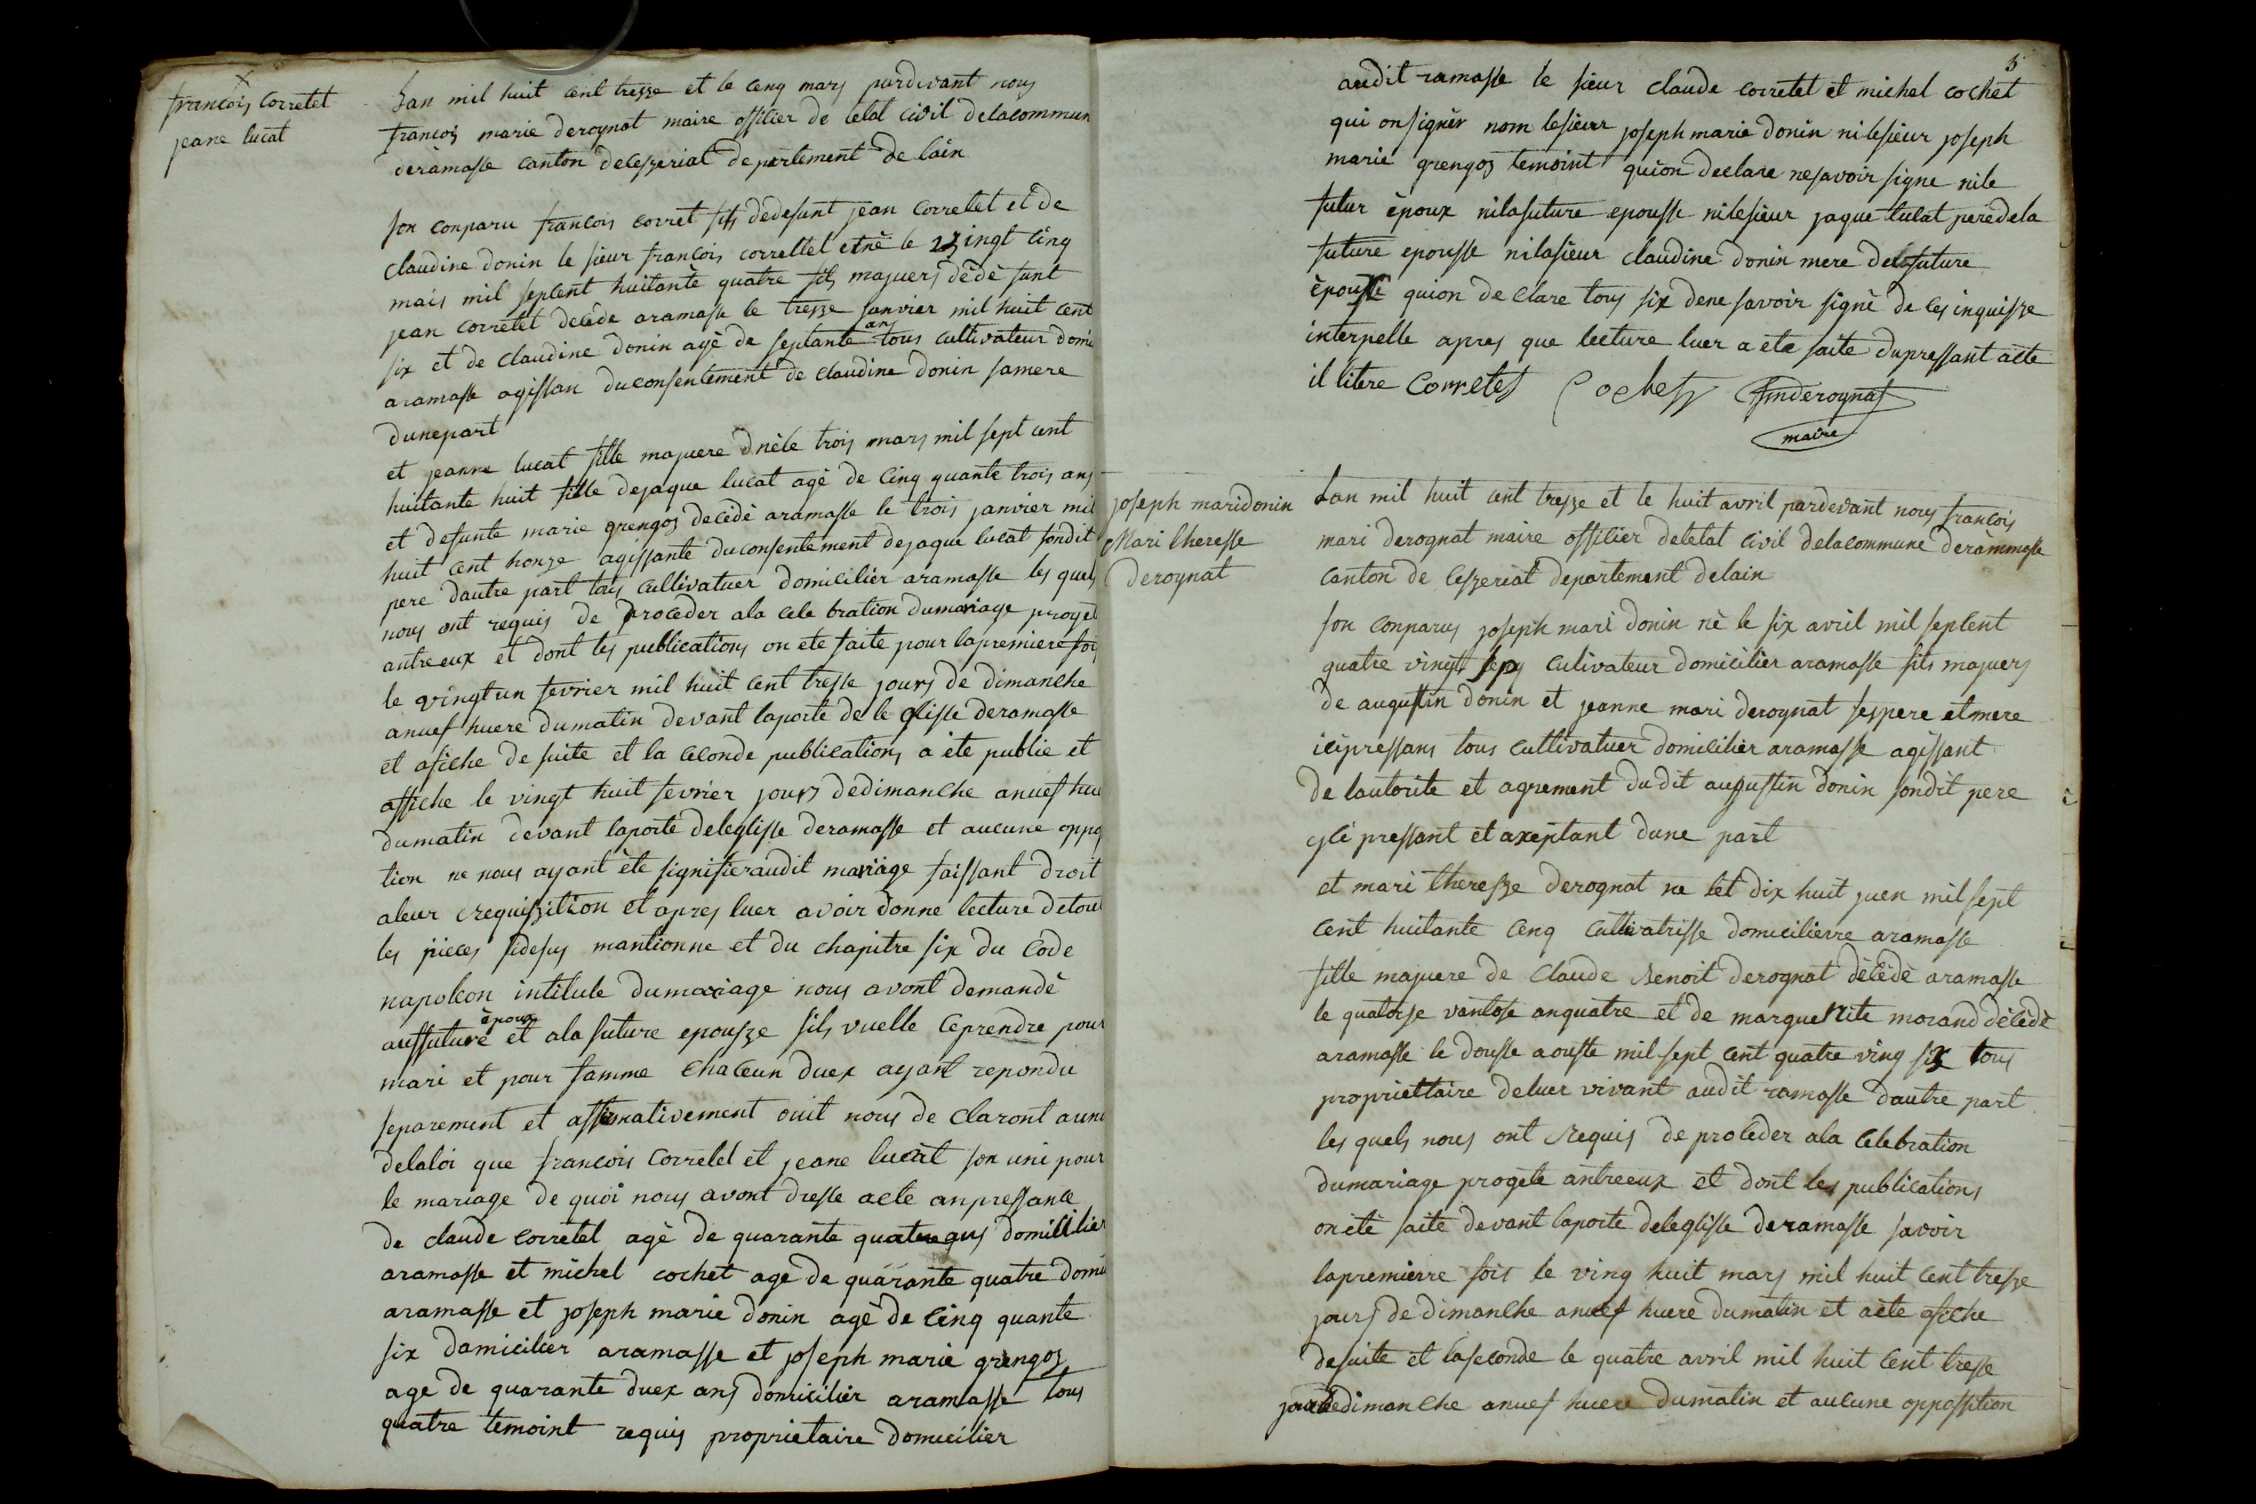 francois corretet
jeane lucat
Lan mil huit cent tresze et le cenq mars pardevant nous
francois marie derognat maire offilier de letat civil delacommun
deramasse canton deceszeriat departement de lain
son conparu francois corret fils dedefunt jean corretet et de
claudine donin le sieur francois correttet etnè le vingt cinq
mais mil septent huitantè quatre fils majuers dèdè funt
jean corretet decède aramasse le tresze janvier mil huit cent
six et de claudine donin agè de septante ans tous cultivateur domi
aramasse agissan duconsentement de claudine donin samere
dunepart
et jeanne lucat fille majuere dnèle trois mars mil sept cent
huitante huit fille dejaque lucat agè de cinq quante trois ans
et defunte marie grengoz decèdè aramasse le trois janvier mil
huit cent honze agissante duconsentement dejaque lucat sondit
pere dautre part tous cultivatuer domicilièr aramasse les quels
nous ont requis de proceder ala cele bration dumariage proget
antreeux et dont les publications on ete faite pour lapremiere fois
le vingtun fevrier mil huit cent tresse jours de dimanche
anuef huere dumatin devant laporte de le glisse deramasse
et afiche de suite et la ceconde publications a ète publie et
affiche le vingt huit fevrièr jours dedimanche anuef hue
dumatin devant laporte deleglisse deramasse et aucune oppo
tion ne nous ayant ète signifieraudit mariage faissant droit
aleur requiszition et apres luer avoir donne lecture detout
les pieces sidesus mantionne et du chapitre six du code
napoleon intitule dumariage nous avont demandè
aussuture èpoux et ala future epousze sils vuelle ceprendre pour
mari et pour famme chaceun duex ayant repondu
separement et affirmativement ouit nous de claront aunom
delaloi que francois corretet et jeane lucat son uni pour
le mariage de quoi nous avont dresse acte anpressance
de claude corretet agè de quarante quatre ans domicilier
aramasse et michel cochet age de quarante quatre domi
aramasse et joseph marie donin agè de cinq quante
six domicilier aramasse et joseph marie grengoz
age de quarante duex ans domicilièr aramasse tous
quatre temoint requis proprietaire domicilier
3
audit ramasse le sieur claude corretet et michel cochet
qui onsignèr nom lesieur joseph marie donin nilesieur joseph
marie grengoz temoint quion declare nesavoir signe nile
futur èpoux nilafuture epousse nilesieur jaque lucat peredela
future epousse nilasieur claudine donin mere delafuture
èpouse quion de clare tous six dene savoir signè de ces inquisze
interpelle apres que lecture luer a ete faite dupressant acte
il litere Corretet Cochet fmderognat
maire
joseph maridonin
Mari theresse
derognat
Lan mil huit cent tresze et le huit avril pardevant nous francois
mari derognat maire offilier deletat civil delacommune derammasse
canton de ceszeriat departement delain
son conparus joseph mari donin nè le six avril mil septent
quatre vingt sept cultivateur domicilièr aramasse fils majuers
de augustin donin et jeanne mari derognat sespere etmere
icipressans tous cultivatuer domicilièr aramasse agissant
de lautorite et agrement dudit augustin donin sondit pere
yci pressant et axeptant dune part
et mari theresze derognat ne let dix huit juen mil sept
cent huitante cenq cultivatrisse domicilierre aramasse
fille majuere de claude Benoit derognat dècèdè aramasse
le quatorse vantose anquatre et de marguerite morand dècèdè
aramasse le dousse aouste mil sept cent quatre ving six tous
propriettaire deluer vivant audit ramasse dautre part
les quels nous ont requis de proceder ala celebration
dumariage progete antreeux et dont les publications
onètè faite devant laporte deleglisse deramasse savoir
lapremierre fois le ving huit mars mil huit cent tresze
jours de dimanche anuef huere dumatin et aète afiche
desuite et laseconde le quatre avril mil huit cent tresse
jourdedimanche anuef huere dumatin et aucune oppossition